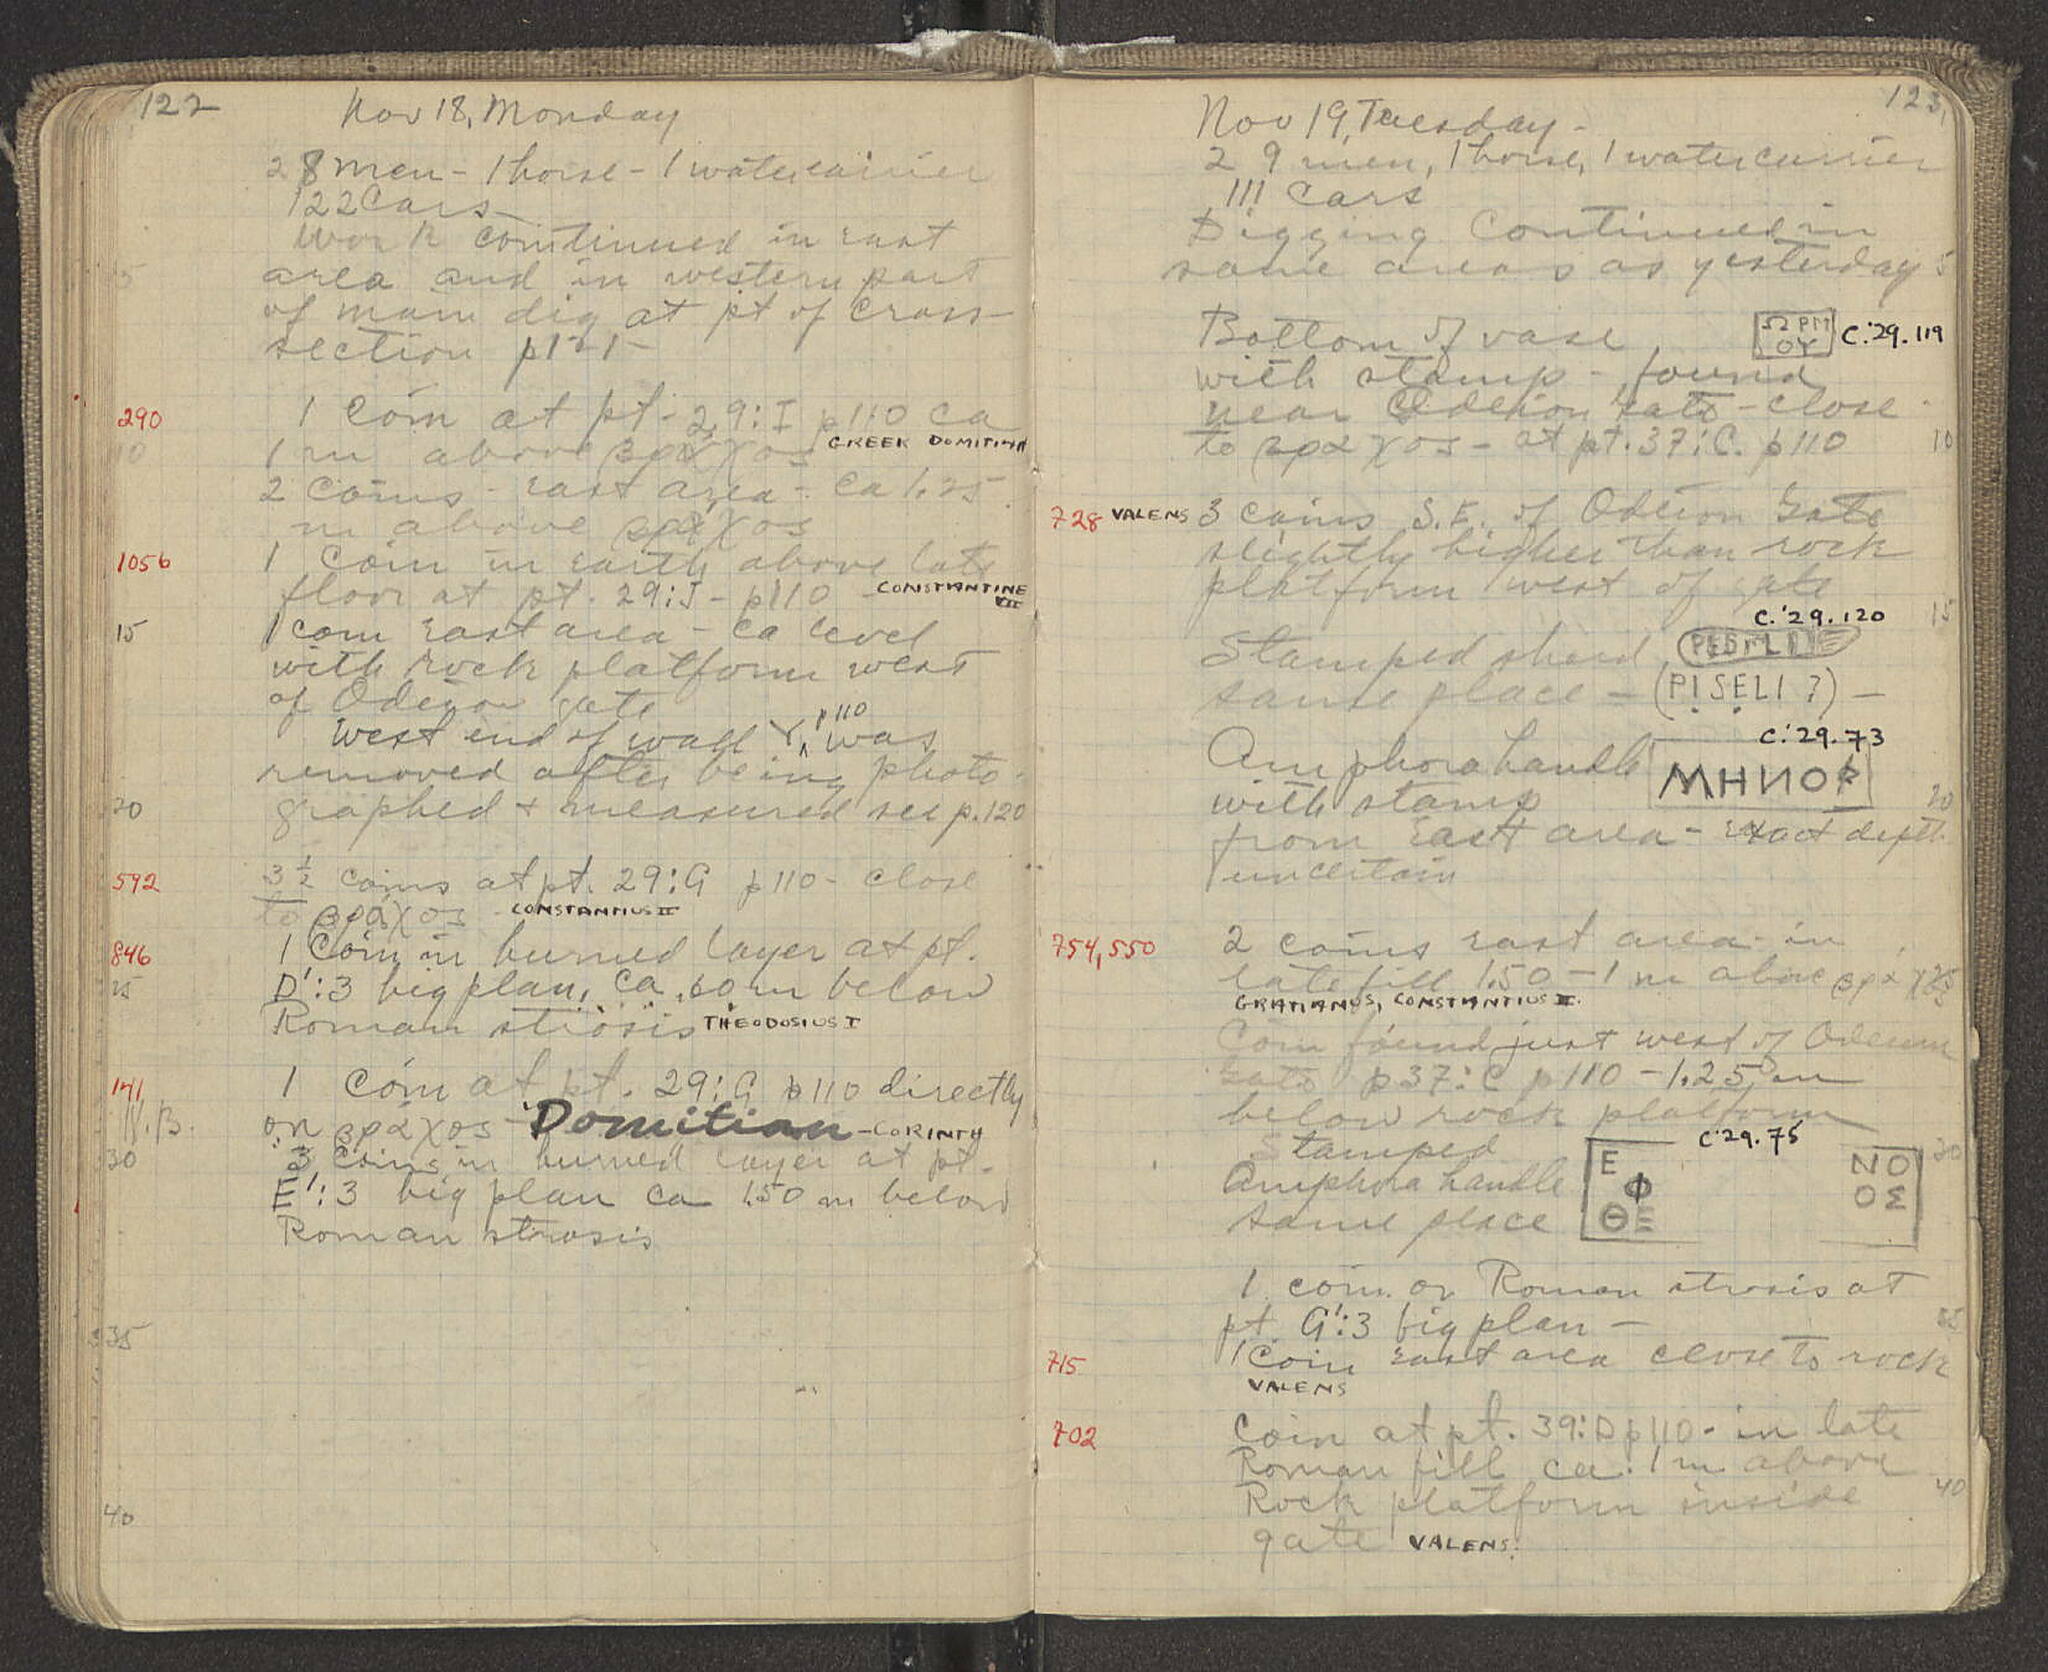 122
Nov 18, Monday
28 men - 1 horse - 1 watercarrier
122 Cars
Work continued in east
5 area and in western part
of main dig at pt of cross
section p1-1-
290 1 Coin at pt. 29:I p110 ca
GREEK DOMITIAN
10 1 m above βράχος
2 coins - east area - ca 1.25
m above βράχος
1056 1 Coin in earth above late
floor at pt. 29:J - p110 - CONSTANTINE VII
15 1 coin east area - ca level
with rock platform west
of Odeion gate
West end of wall Y p110 was
removed after being photo-
20 graphed + measured see p.120
592 3½ coins at pt. 29:G p110 - close
to βράχος - CONSTANTIUS II
846 1 Coin in burned layer at pt.
25 D':3 big plan, ca .60 m below
Roman strosis THEODOSIUS I
141 1 Coin at pt. 29:G p110 directly
N.B. on βράχος - Domitian - CORINTH
30 3 coins in burned layer at pt.
E':3 big plan ca 1.50 m below
Roman strosis
35
40
123
Nov 19, Tuesday -
29 men, 1 horse, 1 watercarrier
111 Cars
Digging continued in
same areas as yesterday 5
Bottom of vase ΩΡΜ ΟΥ C.'29.119
with stamp - found
near Odeion Gate - close
to βράχος - at pt. 37:C. p110 10
728 VALENS 3 coins S.E. of Odeion Gate
slightly higher than rock
platform west of gate
C.'29.120 15
Stamped sherd
same place - (PISELI ?) -
C.'29.73
Amphora handle ΜΗΝΟΦ
with stamp 20
from East area - exact depth
uncertain
754, 550 2 coins east area - in
late fill 1.50 - 1 m above βράχος 25
GRATIANUS, CONSTANTIUS II.
Coin found just west of Odeum
Gate p37:C p110 - 1.25 m
below rock platform
Stamped C'29.75 30
Amphora handle Ε Φ ΘΕ ΝΟ ΟΣ
same place
1 coin on Roman strosis at
pt. G':3 big plan - 35
715 1 Coin East area close to rock
VALENS
702 Coin at pt. 39:D p110 - in late
Roman fill ca. 1 m above
Rock platform inside 40
gate VALENS.